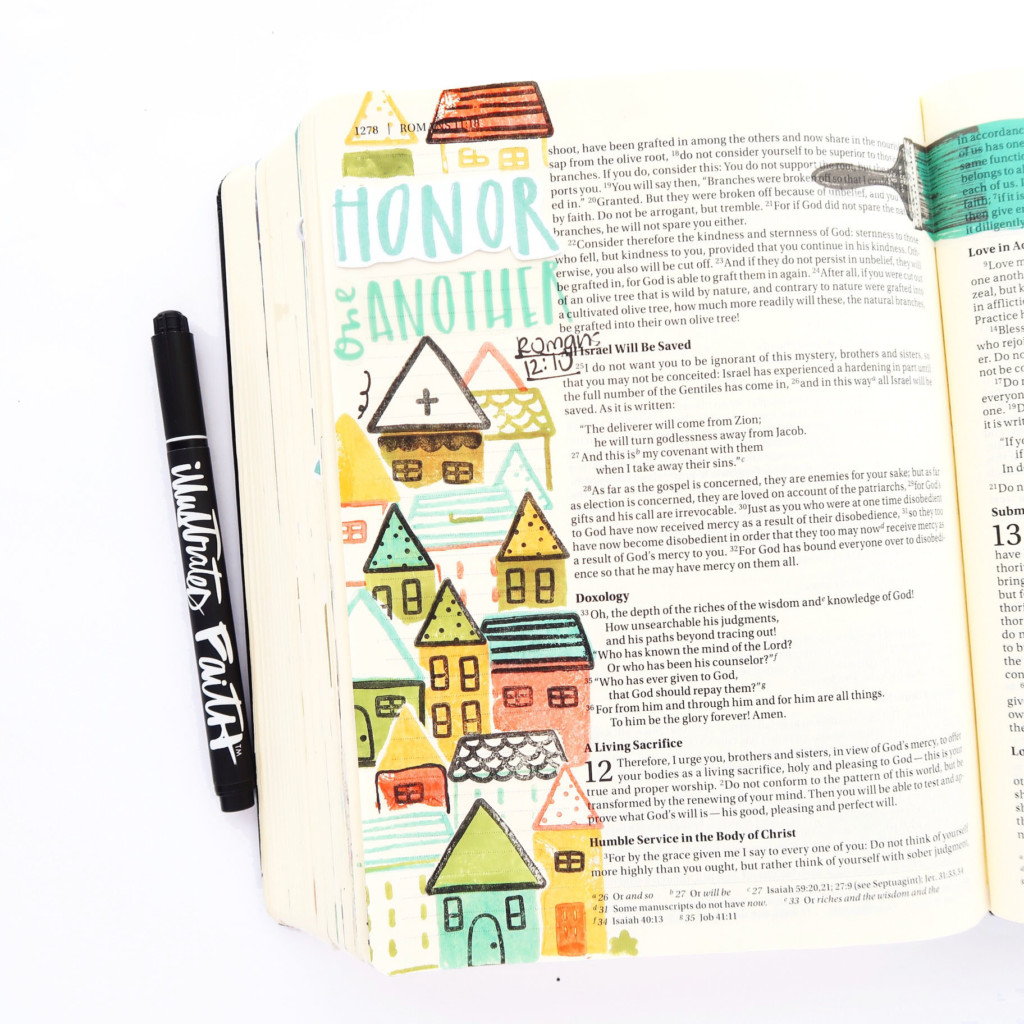 1278 | ROMANS 11:18
HONOR
one ANOTHER
Romans
12:10
illustrated FAITH™
shoot, have been grafted in among the others and now share in the nourishing
sap from the olive root, 18do not consider yourself to be superior to those
branches. If you do, consider this: You do not support the root, but the
ports you. 19You will say then, “Branches were broken off so that I could be
ed in.” 20Granted. But they were broken off because of unbelief, and you
by faith. Do not be arrogant, but tremble. 21For if God did not spare the
branches, he will not spare you either.
22Consider therefore the kindness and sternness of God: sternness to those
who fell, but kindness to you, provided that you continue in his kindness. Oth-
erwise, you also will be cut off. 23And if they do not persist in unbelief, they will
be grafted in, for God is able to graft them in again. 24After all, if you were cut out
of an olive tree that is wild by nature, and contrary to nature were grafted into
a cultivated olive tree, how much more readily will these, the natural branches,
be grafted into their own olive tree!
All Israel Will Be Saved
25I do not want you to be ignorant of this mystery, brothers and sisters, so
that you may not be conceited: Israel has experienced a hardening in part until
the full number of the Gentiles has come in, 26and in this wayd all Israel will be
saved. As it is written:
“The deliverer will come from Zion;
he will turn godlessness away from Jacob.
27And this isb my covenant with them
when I take away their sins.”c
28As far as the gospel is concerned, they are enemies for your sake; but as far
as election is concerned, they are loved on account of the patriarchs, 29for God’s
gifts and his call are irrevocable. 30Just as you who were at one time disobedient
to God have now received mercy as a result of their disobedience, 31so they too
have now become disobedient in order that they too may nowd receive mercy as
a result of God’s mercy to you. 32For God has bound everyone over to disobedi-
ence so that he may have mercy on them all.
Doxology
33Oh, the depth of the riches of the wisdom ande knowledge of God!
How unsearchable his judgments,
and his paths beyond tracing out!
“Who has known the mind of the Lord?
Or who has been his counselor?”f
35“Who has ever given to God,
that God should repay them?”g
36For from him and through him and for him are all things.
To him be the glory forever! Amen.
A Living Sacrifice
12 Therefore, I urge you, brothers and sisters, in view of God’s mercy, to offer
your bodies as a living sacrifice, holy and pleasing to God—this is your
true and proper worship. 2Do not conform to the pattern of this world, but be
transformed by the renewing of your mind. Then you will be able to test and ap-
prove what God’s will is—his good, pleasing and perfect will.
Humble Service in the Body of Christ
3For by the grace given me I say to every one of you: Do not think of yourself
more highly than you ought, but rather think of yourself with sober judgment,
a 26 Or and so b 27 Or will be c 27 Isaiah 59:20,21; 27:9 (see Septuagint); Jer. 31:33,34
d 31 Some manuscripts do not have now. e 33 Or riches and the wisdom and the
f 34 Isaiah 40:13 g 35 Job 41:11
in accordance
of us has one
same functio
belongs to al
each of us. I
faith; 7if it is
then give en
it diligently
Love in Ac
9Love m
one anoth
zeal, but k
in afflictio
Practice h
14Bless
who rejoi
er. Do no
not be co
17Do n
everyon
one. 19D
it is writ
“If y
In d
21Do n
Subm
13
have
thori
bring
but f
thor